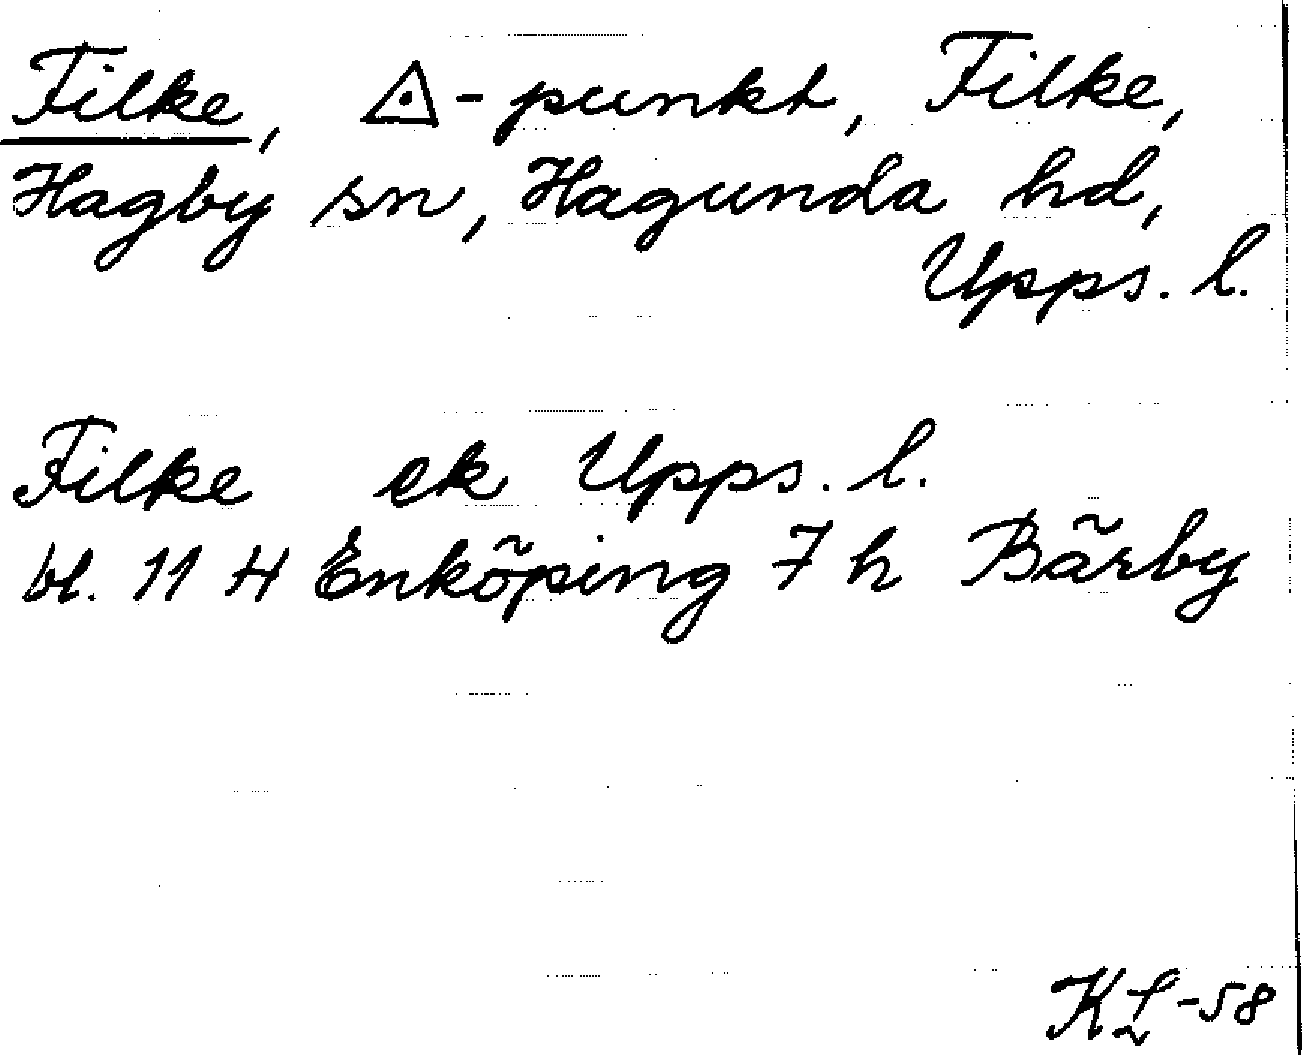 Filke, △-punkt, Filke,
Hagby sn, Hagunda hd,
Upps. l.
Filke ek Upps. l.
bl. 11 H Enköping 7 h Bärby
KL-58